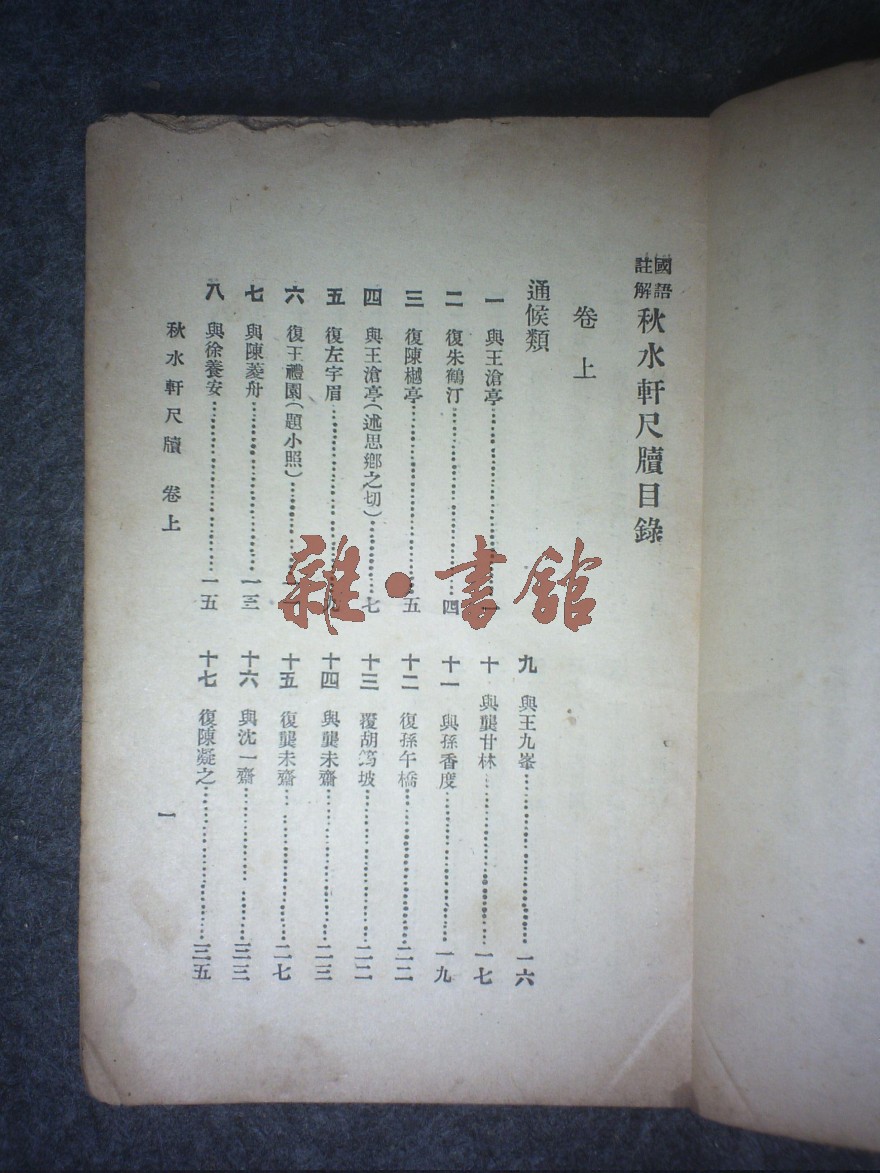 國語註解 秋水軒尺牘目錄
卷上
通候類
一 與王滄亭……一
二 復朱鶴汀……四
三 復陳樾亭……五
四 與王滄亭(述思鄉之切)……七
五 復左字眉……九
六 復王禮園(題小照)……
七 與陳菱舟……一三
八 與徐養安……一五
九 與王九峯……一六
十 與龔甘林……一七
十一 與孫香度……一九
十二 復孫午橋……二二
十三 覆胡篤坡……二二
十四 與龔未齋……二三
十五 復龔未齋……二七
十六 與沈一齋……三三
十七 復陳凝之……三五
秋水軒尺牘 卷上
一
雜·書館